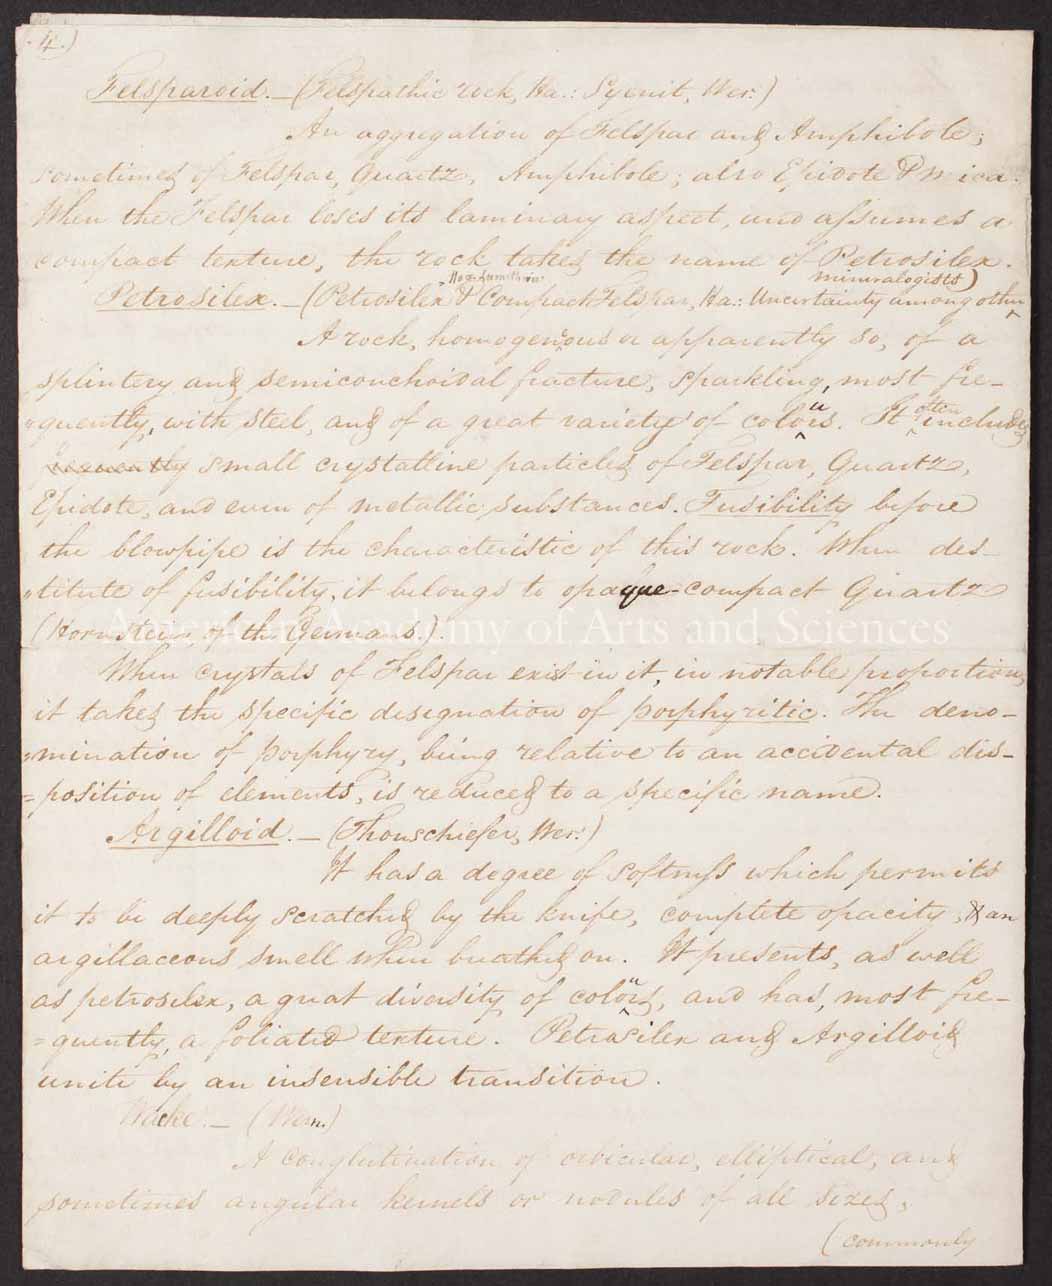 4.)
Felsparoid. — (Felspathic rock, Ha.: Syenit, Wer.)
An aggregation of Felspar and Amphibole;
sometimes of Felspar, Quartz, Amphibole; also Epidote & Mica.
When the Felspar loses its laminary aspect, and assumes a
compact texture, the rock takes the name of Petrosilex.
mineralogists)
Petrosilex. — (Petrosilex & Compact Felspar, Ha.: Uncertainty among other
A rock, homogeneous or apparently so, of a
splintery and semiconchoidal fracture, sparkling, most fre-
"quently, with steel, and of a great variety of colours. It often includes
frequently small crystalline particles of Felspar, Quartz,
Epidote, and even of metallic substances. Fusibility before
the blowpipe is the characteristic of this rock. When des-
"titute of fusibility, it belongs to opaque compact Quartz
(Hornstein, of the Germans.).
American Academy of Arts and Sciences
When crystals of Felspar exist in it, in notable proportions,
it takes the specific designation of porphyritic. The deno-
"mination of porphyry, being relative to an accidental dis-
=position of elements, is reduced to a specific name.
Argilloid. — (Thonschiefer, Wer.)
It has a degree of softness which permits
it to be deeply scratched by the knife, complete opacity, & an
argillaceous smell when breathed on. It presents, as well
as petrosilex, a great diversity of colours, and has, most fre-
=quently, a foliated texture. Petrosilex and Argilloid
unite by an insensible transition.
Wacke. — (Wern.)
A conglutination of orbicular, elliptical, and
sometimes angular kernels or nodules of all sizes,
(commonly